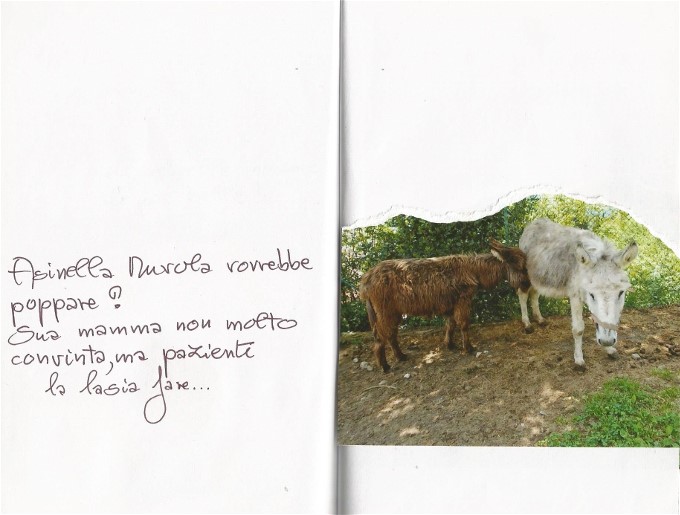 Asinella Nuvola vorrebbe
poppare?
Sua mamma non molto
convinta, ma paziente
la lascia fare...